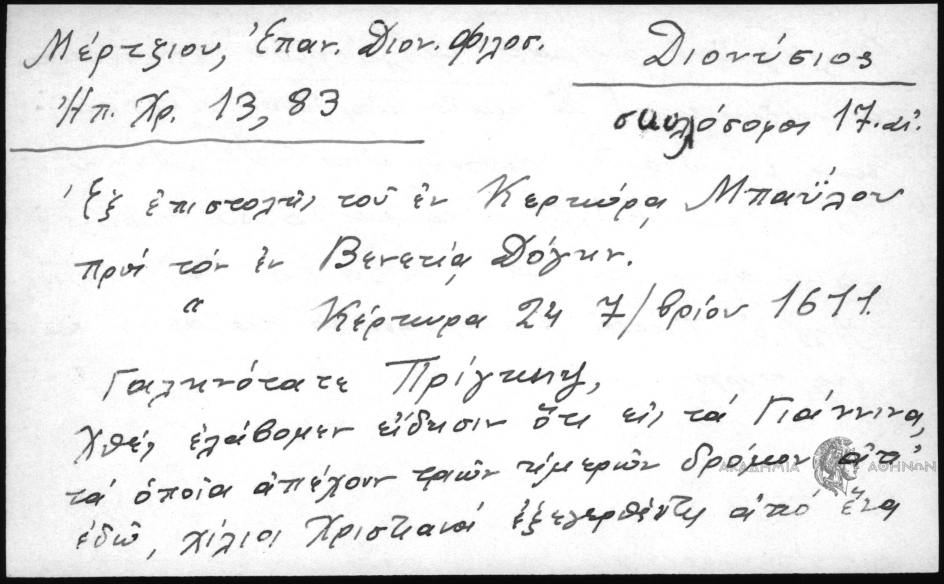 Μέρτζιου, Ἐπαν. Διον. Φιλοσ.
Διονύσιος
Ἠπ. Χρ. 13, 83
σκυλόσοφοι 17. αἰ.
Ἐξ ἐπιστολῆς τοῦ ἐν Κερκύρᾳ Μπαΰλου
πρός τόν ἐν Βενετίᾳ Δόγην.
" Κέρκυρα 24 7/βρίου 1611.
Γαληνότατε Πρίγκηψ,
Χθές ἐλάβομεν εἴδησιν ὅτι εἰς τά Γιάννινα,
τά ὁποῖα ἀπέχουν τριῶν ἡμερῶν δρόμον ἀπ'
ἐδῶ, χίλιοι Χριστιανοί ἐξεγερθέντες ἀπό ἕνα
ΑΚΑΔΗΜΙΑ ΑΘΗΝΩΝ